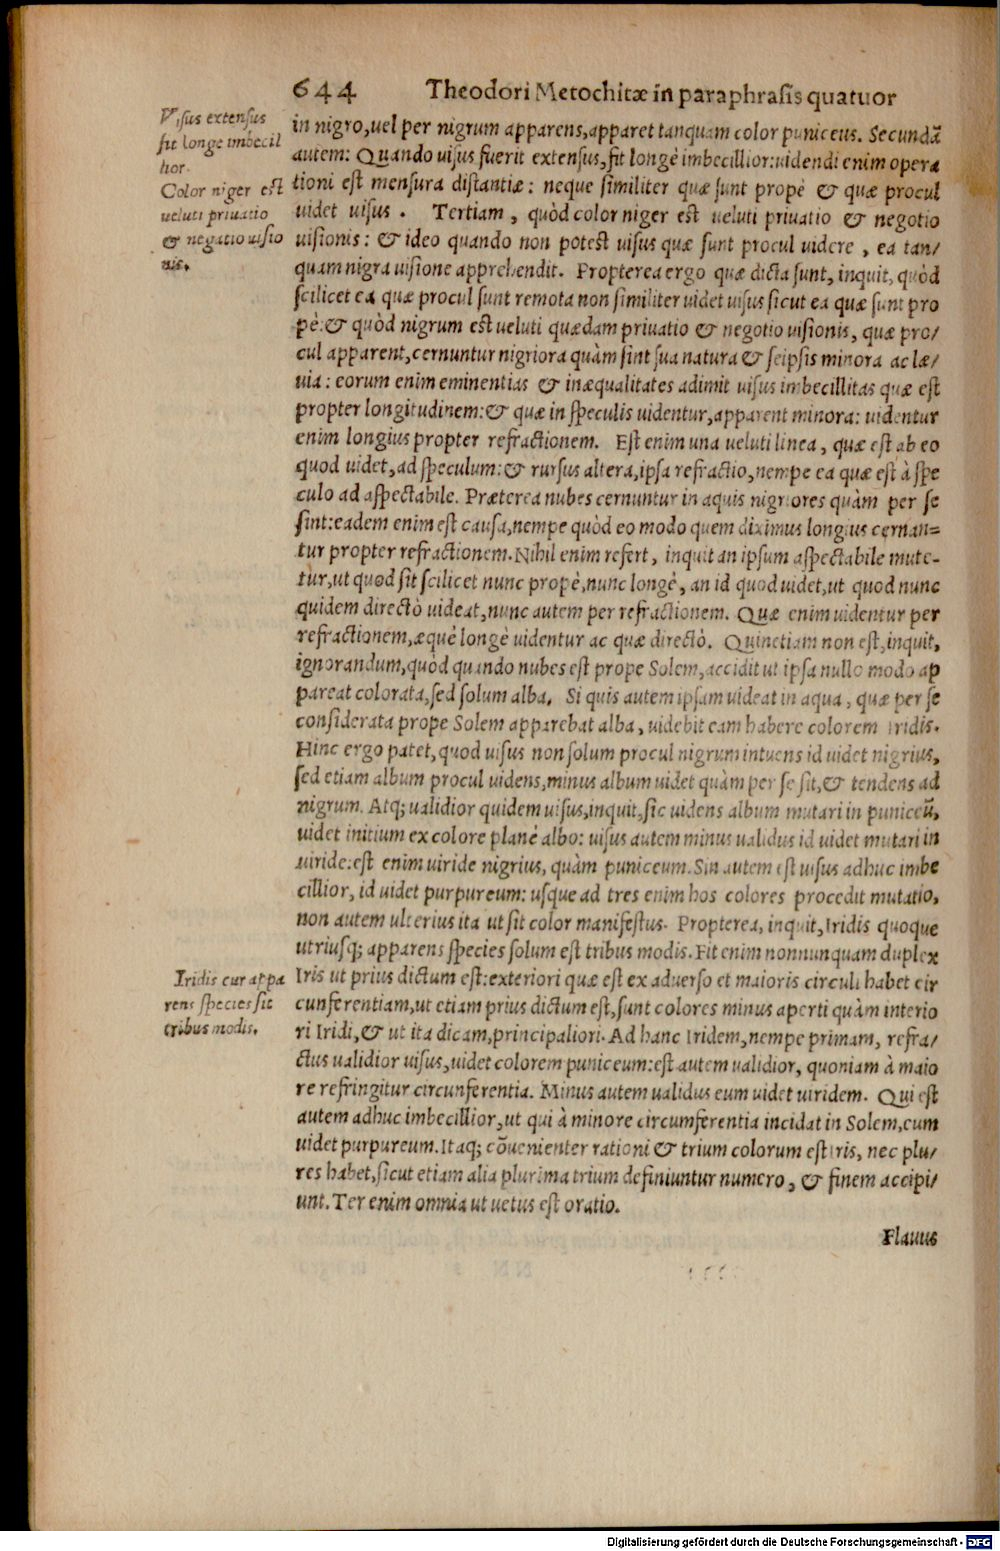 644 Theodori Metochitæ in paraphrasis quatuor
Visus extensus
fit longe imbecil
lior.
Color niger est
ueluti priuatio
& negatio uisio
nis.
in nigro, uel per nigrum apparens, apparet tanquam color puniceus. Secundā
autem: Quando uisus fuerit extensus, fit longè imbecillior: uidendi enim opera
tioni est mensura distantiæ: neque similiter quæ sunt propè & quæ procul
uidet uisus. Tertiam, quòd color niger est ueluti priuatio & negotio
uisionis: & ideo quando non potest uisus quæ sunt procul uidere, ea tan/
quam nigra uisione apprehendit. Propterea ergo quæ dicta sunt, inquit, quòd
scilicet ea quæ procul sunt remota non similiter uidet uisus sicut ea quæ sunt pro
pè: & quòd nigrum est ueluti quædam priuatio & negotio uisionis, quæ pro/
cul apparent, cernuntur nigriora quàm sint sua natura & seipsis minora ac læ/
uia: eorum enim eminentias & inæqualitates adimit uisus imbecillitas quæ est
propter longitudinem: & quæ in speculis uidentur, apparent minora: uidentur
enim longius propter refractionem. Est enim una ueluti linea, quæ est ab eo
quod uidet, ad speculum: & rursus altera, ipsa refractio, nempe ea quæ est à spe
culo ad aspectabile. Præterea nubes cernuntur in aquis nigriores quàm per se
sint: eadem enim est causa, nempe quòd eo modo quem diximus longius cernan=
tur propter refractionem. Nihil enim refert, inquit an ipsum aspectabile mute-
tur, ut quod sit scilicet nunc propè, nunc longè, an id quod uidet, ut quod nunc
quidem directò uideat, nunc autem per refractionem. Quæ enim uidentur per
refractionem, æquè longè uidentur ac quæ directò. Quinetiam non est, inquit,
ignorandum, quòd quando nubes est prope Solem, accidit ut ipsa nullo modo ap
pareat colorata, sed solum alba. Si quis autem ipsam uideat in aqua, quæ per se
considerata prope Solem apparebat alba, uidebit eam habere colorem Iridis.
Hinc ergo patet, quod uisus non solum procul nigrum intuens id uidet nigrius,
sed etiam album procul uidens, minus album uidet quàm per se sit, & tendens ad
nigrum. Atq; ualidior quidem uisus, inquit, sic uidens album mutari in puniceū,
uidet initium ex colore planè albo: uisus autem minus ualidus id uidet mutari in
uiride: est enim uiride nigrius, quàm puniceum. Sin autem est uisus adhuc imbe
cillior, id uidet purpureum: usque ad tres enim hos colores procedit mutatio,
non autem ulterius ita ut sit color manifestus. Propterea, inquit, Iridis quoque
utriusq; apparens species solum est tribus modis. Fit enim nonnunquam duplex
Iridis cur appa
rens species sit
tribus modis.
Iris ut prius dictum est: exteriori quæ est ex aduerso et maioris circuli habet cir
cunferentiam, ut etiam prius dictum est, sunt colores minus aperti quàm interio
ri Iridi, & ut ita dicam, principaliori. Ad hanc Iridem, nempe primam, refra/
ctus ualidior uisus, uidet colorem puniceum: est autem ualidior, quoniam à maio
re refringitur circunferentia. Minus autem ualidus eum uidet uiridem. Qui est
autem adhuc imbecillior, ut qui à minore circumferentia incidat in Solem, eum
uidet purpureum. Itaq; cōuenienter rationi & trium colorum est iris, nec plu/
res habet, sicut etiam alia plurima trium definiuntur numero, & finem accipi/
unt. Ter enim omnia ut uetus est oratio.
Flauus
Digitalisierung gefördert durch die Deutsche Forschungsgemeinschaft - DFG